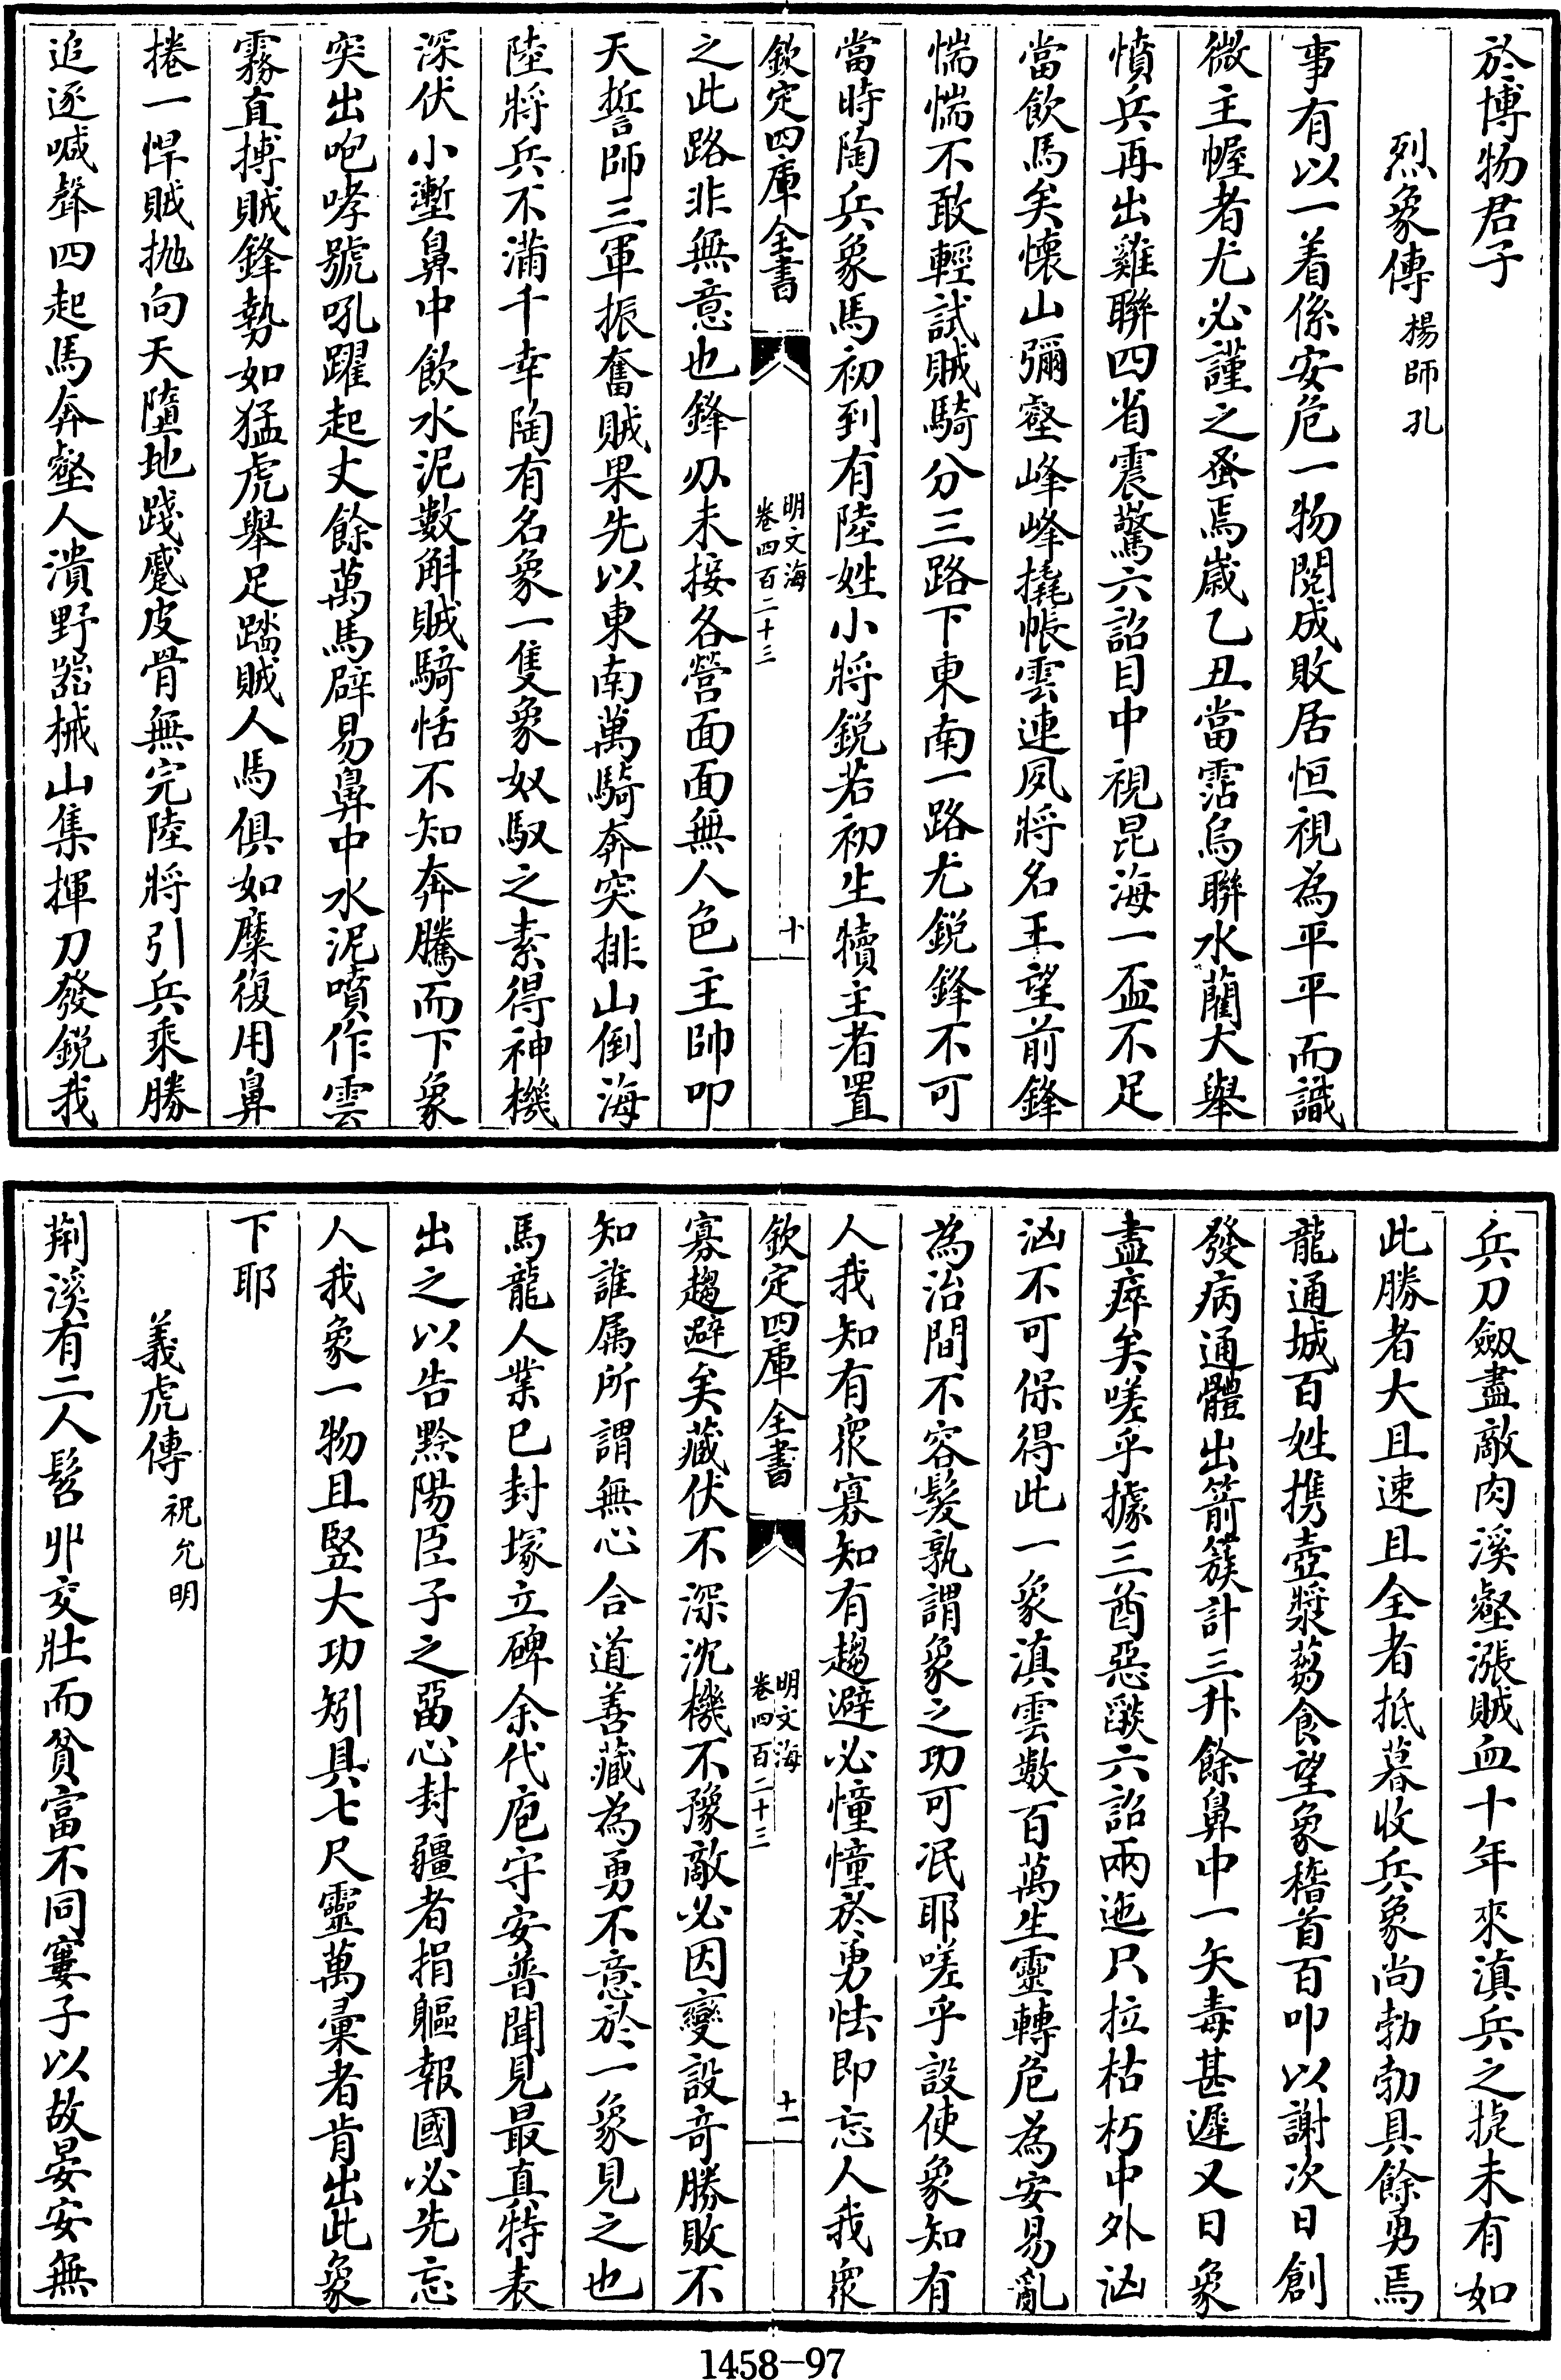 於博物君子
烈象傳 楊師孔
事有以一着係安危一物閱成敗居恒視為平平而識
微主幄者尤必謹之蚤焉歲乙丑當霑烏聯水藺大舉
憤兵再出雞聯四省震驚六詔目中視昆海一盃不足
當飲馬矣懷山彌壑峰峰撓帳雲連夙將名王望前鋒
惴惴不敢輕試賊騎分三路下東南一路尤鋭鋒不可
當時陶兵象馬初到有陸姓小將鋭若初生犢主者置
欽定四庫全書
明文海
卷四百二十三
十
之此路非無意也鋒刃未接各營面面無人色主帥叩
天誓師三軍振奮賊果先以東南萬騎奔突排山倒海
陸將兵不滿千幸陶有名象一隻象奴馭之素得神機
深伏小塹鼻中飲水泥數斛賊騎恬不知奔騰而下象
突出咆哮號吼躍起丈餘萬馬辟易鼻中水泥噴作雲
霧直搏賊鋒勢如猛虎舉足踏賊人馬俱如糜復用鼻
捲一悍賊拋向天墮地踐蹙皮骨無完陸將引兵乘勝
追逐喊聲四起馬奔壑人潰野器械山集揮刀發鋭我
兵刀劔盡敵肉溪壑漲賊血十年來滇兵之捷未有如
此勝者大且速且全者抵暮收兵象尚勃勃具餘勇焉
龍通城百姓携壺漿芻食望象稽首百叩以謝次日創
發病通體出箭簇計三升餘鼻中一矢毒甚遲又日象
盡瘁矣嗟乎據三酋惡燄六詔兩迤只拉枯朽中外汹
汹不可保得此一象滇雲數百萬生靈轉危為安易亂
為治間不容髮孰謂象之功可泯耶嗟乎設使象知有
人我知有衆寡知有趨避必憧憧於勇怯即忘人我衆
欽定四庫全書
明文海
卷四百二十三
十一
寡趨避矣藏伏不深沈機不豫敵必因變設奇勝敗不
知誰屬所謂無心合道善藏為勇不意於一象見之也
馬龍人業已封塚立碑余代庖守安普聞見最真特表
出之以告黔陽臣子之留心封疆者捐軀報國必先忘
人我象一物且竪大功矧具七尺靈萬彙者肯出此象
下耶
義虎傳 祝允明
荆溪有二人髫丱交壯而貧富不同窶子以故晏安無
1458-97